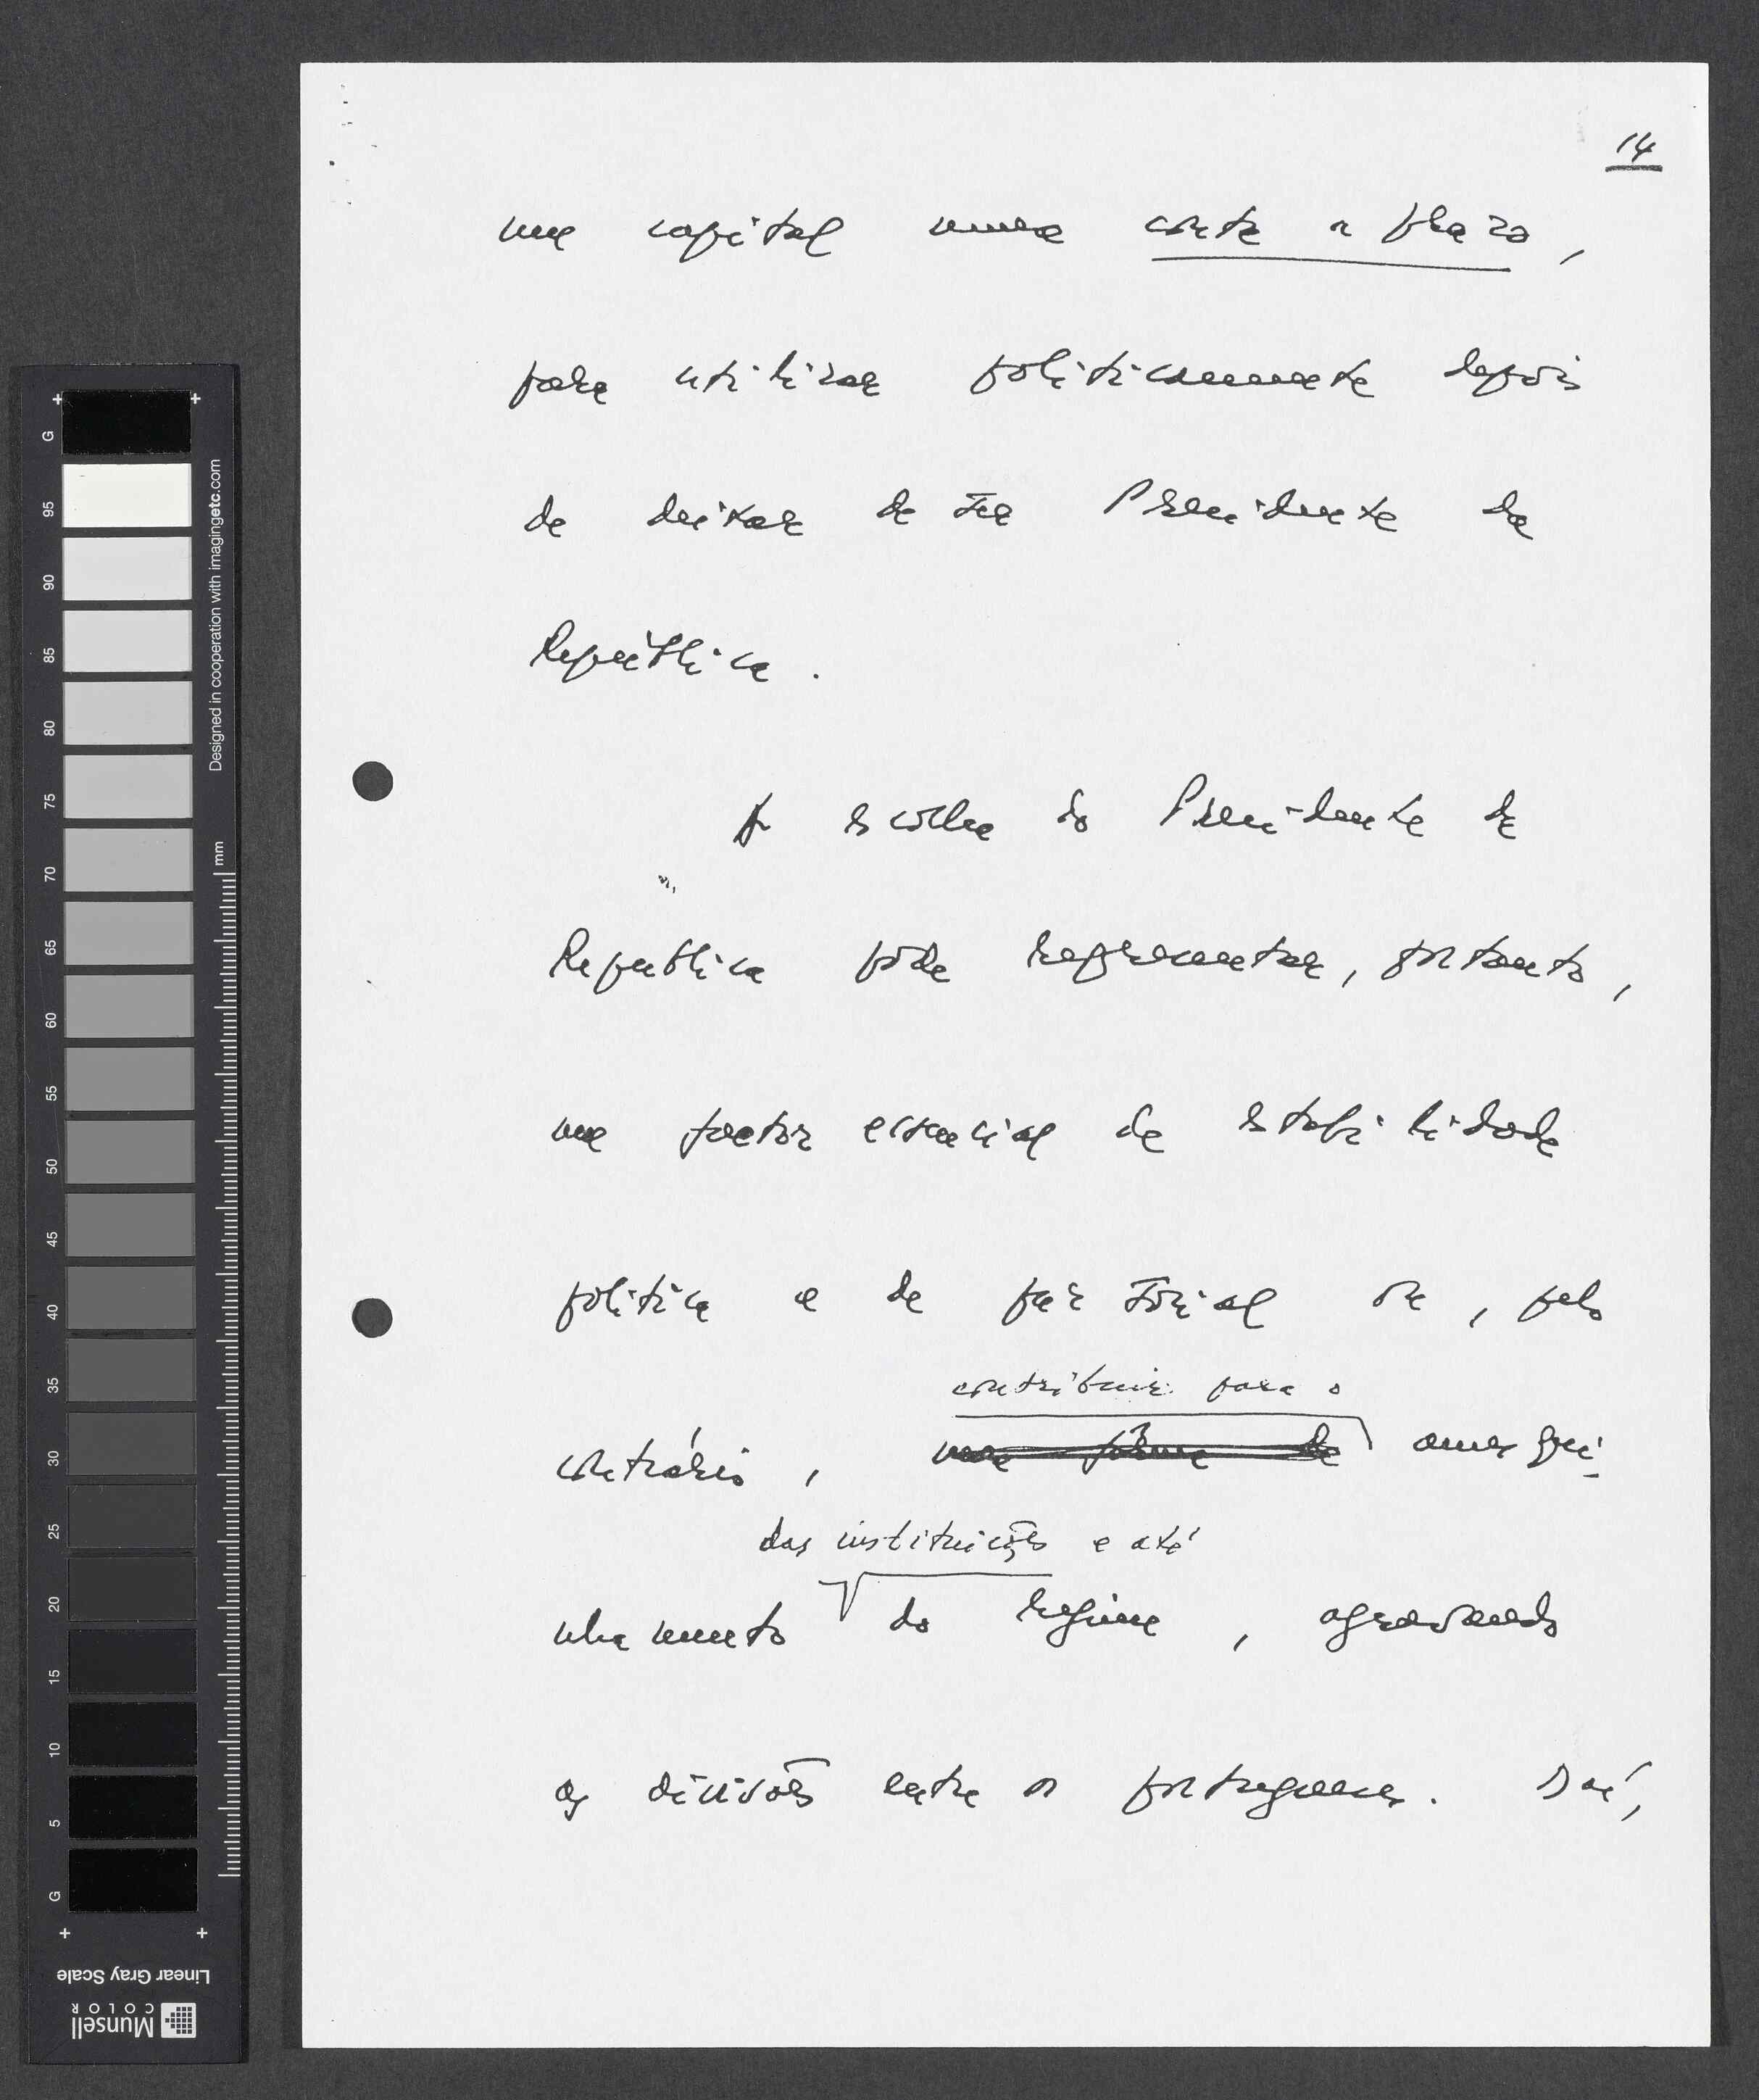 14
um capital numa conta a prazo,
para utilizar politicamente depois
de deixar de ser Presidente da
República.
A escolha do Presidente da
República pode representar, portanto,
um factor essencial de estabilidade
política e de paz social ou, pelo
contribuir para o
contrário, uma forma de amesqui-
das instituições e até
nhamento do regime, agravando
as divisões entre os portugueses. Daí,
G
95
90
85
80
75
70
65
60
55
50
45
40
35
30
25
20
15
10
5
G
mm
Designed in cooperation with imagingetc.com
Linear Gray Scale
Munsell
COLOR